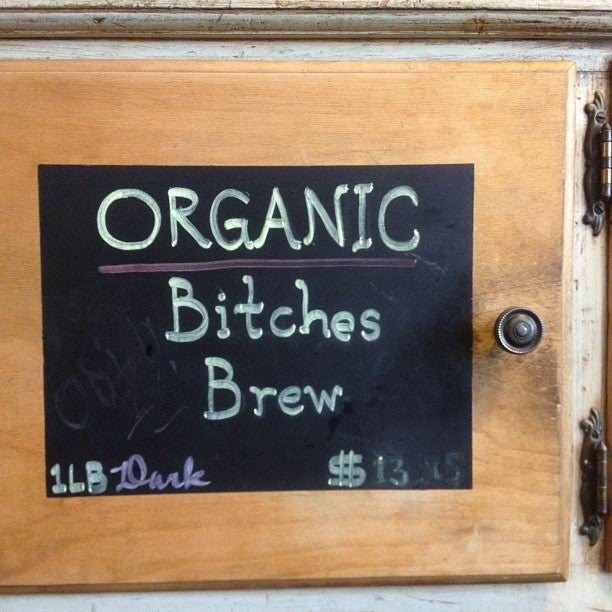 ORGANIC
Bitches
Brew
1LB Dark $13.